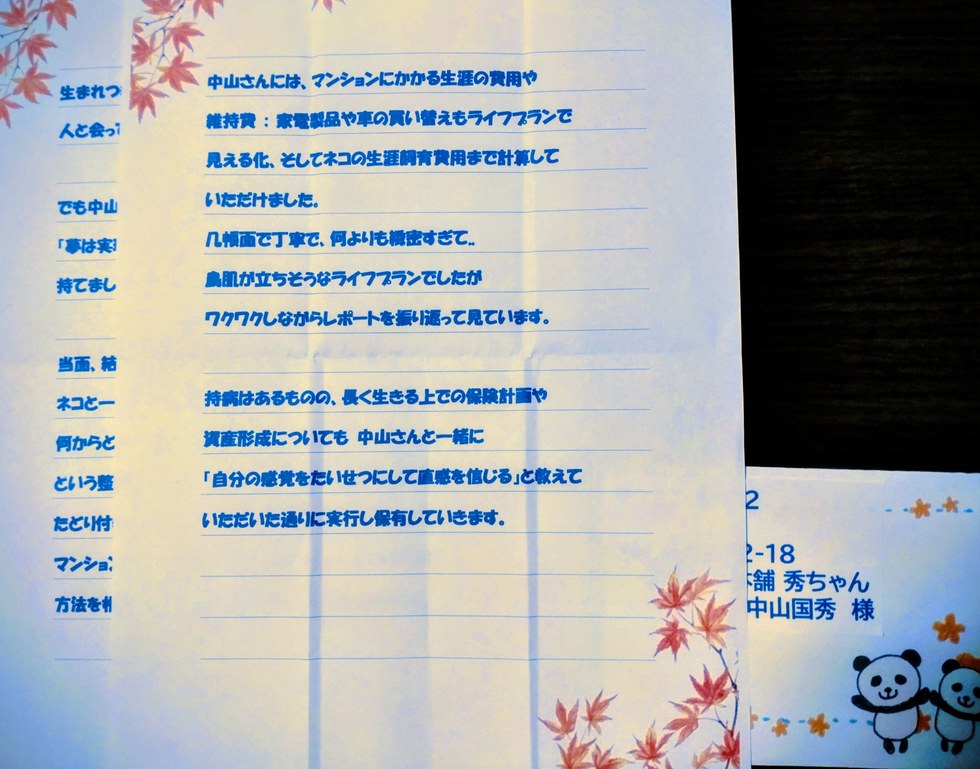 生まれつ
人と会って
でも中山
「夢は実
持てまし
当面、結
ネコと一
何からと
という整
たどり付
マンション
方法を
中山さんには、マンションにかかる生涯の費用や
維持費：家電製品や車の買い替えもライフプランで
見える化、そしてネコの生涯飼育費用まで計算して
いただけました。
几帳面で丁寧で、何よりも緻密すぎて..
鳥肌が立ちそうなライフプランでしたが
ワクワクしながらレポートを振り返って見ています。
持病はあるものの、長く生きる上での保険計画や
資産形成についても 中山さんと一緒に
「自分の感覚をたいせつにして直感を信じる」と教えて
いただいた通りに実行し保有していきます。
2
2-18
本舗 秀ちゃん
中山国秀 様